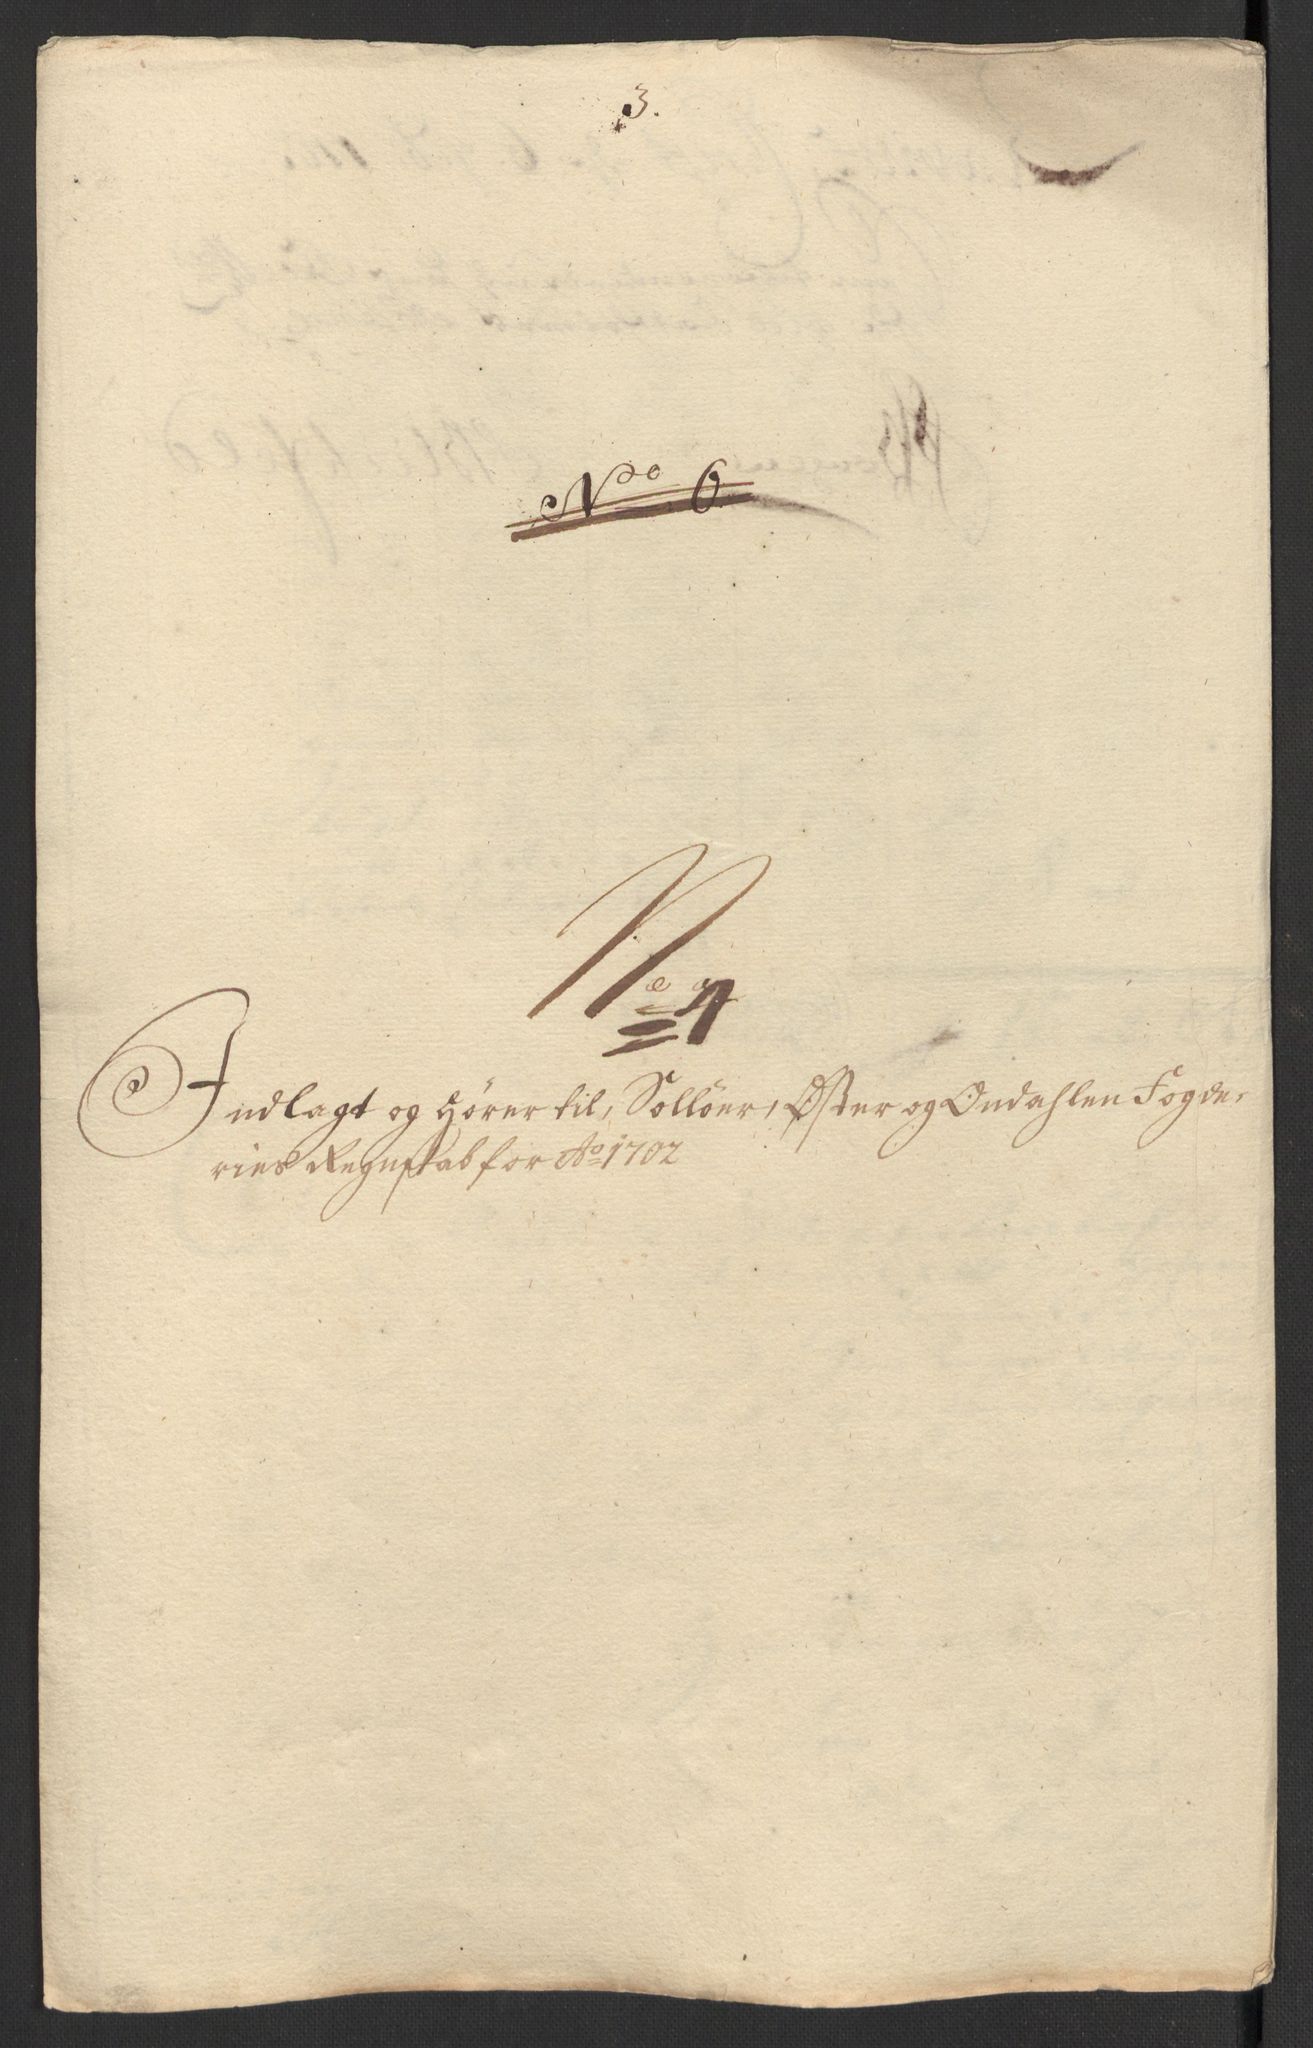 3.
No 6
No 4
Indlagt og hörer til, Sollöer, Øster og Ondahlen Fogde,
ries Regnskab for Ao 1702